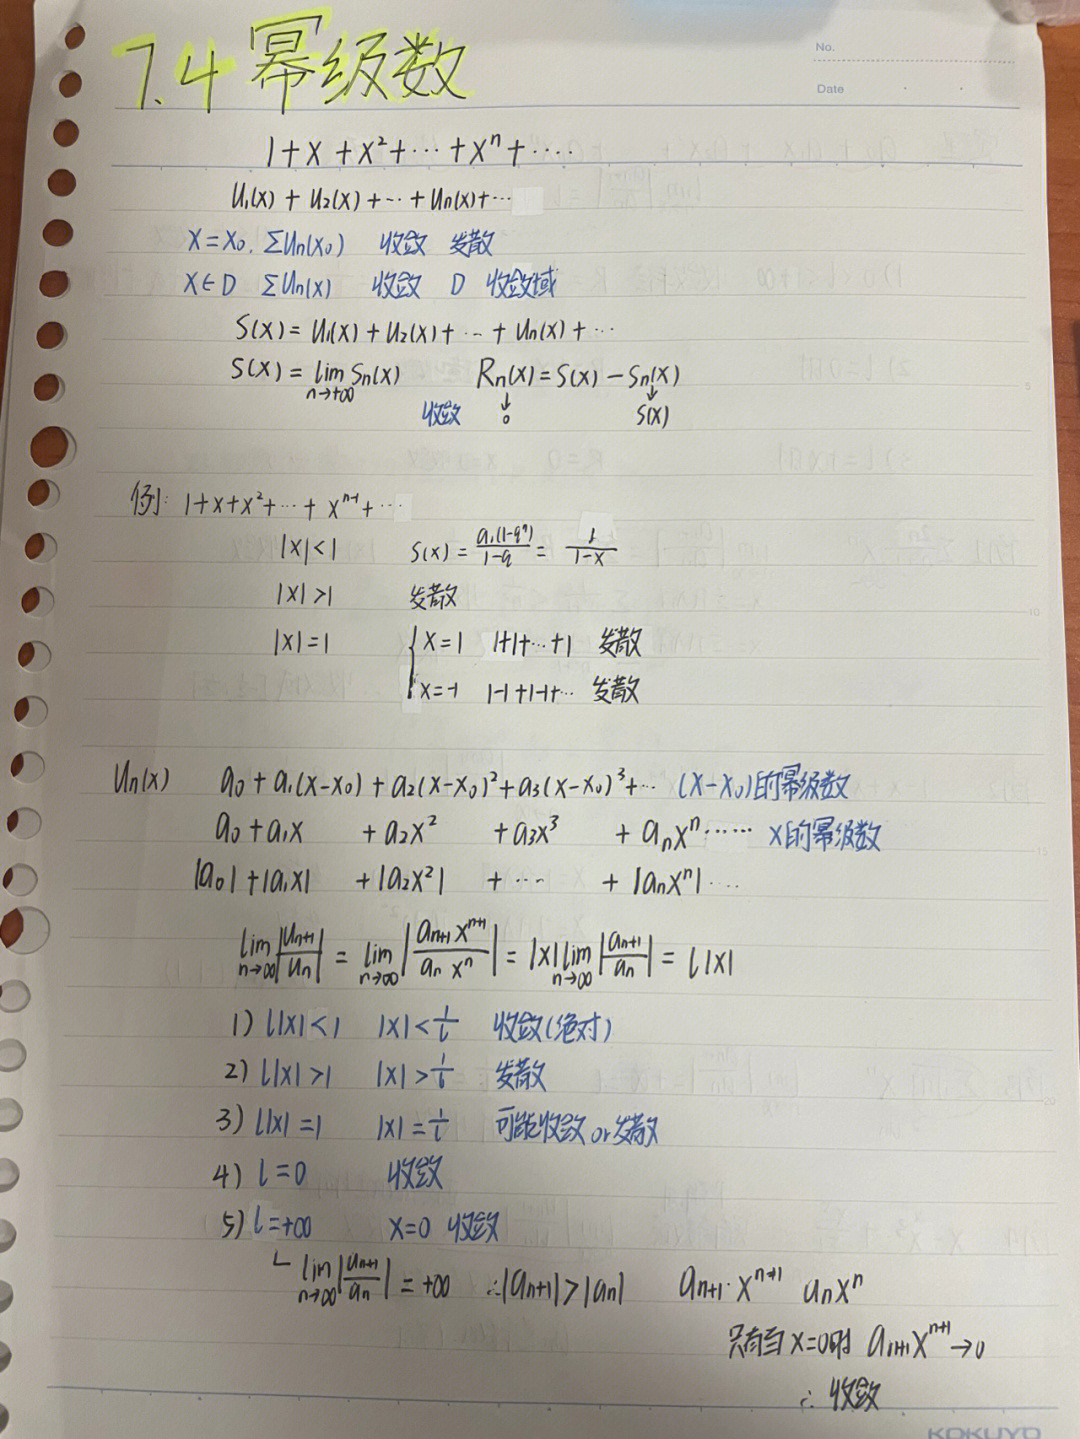 7.4 幂级数
No.
Date
1+x+x²+⋯+xⁿ+⋯
u₁(x)+u₂(x)+⋯+uₙ(x)+⋯
x=x₀. Σuₙ(x₀) 收敛 发散
x∈D Σuₙ(x) 收敛 D 收敛域
S(x)=u₁(x)+u₂(x)+⋯+uₙ(x)+⋯
S(x)=lim n→+∞ Sₙ(x) Rₙ(x)=S(x)-Sₙ(x)
收敛 ↓ 0 ↓ S(x)
例: 1+x+x²+⋯+xⁿ⁻¹+⋯
|x|<1 S(x)=a₁(1-qⁿ)/(1-q)=1/(1-x)
|x|>1 发散
|x|=1 { x=1 1+1+⋯+1 发散
x=-1 1-1+1-1+⋯ 发散
uₙ(x) a₀+a₁(x-x₀)+a₂(x-x₀)²+a₃(x-x₀)³+⋯ (x-x₀)的幂级数
a₀+a₁x +a₂x² +a₃x³ +aₙxⁿ⋯⋯ x的幂级数
|a₀|+|a₁x| +|a₂x²| +⋯ +|aₙxⁿ|⋯
lim n→∞ |uₙ₊₁/uₙ| = lim n→∞ |aₙ₊₁xⁿ⁺¹/aₙxⁿ| = |x| lim n→∞ |aₙ₊₁/aₙ| = l|x|
1) l|x|<1 |x|<1/l 收敛(绝对)
2) l|x|>1 |x|>1/l 发散
3) l|x|=1 |x|=1/l 可能收敛 or 发散
4) l=0 收敛
5) l=+∞ x=0 收敛
lim n→∞ |aₙ₊₁/aₙ| = +∞ ∴|aₙ₊₁|>|aₙ| aₙ₊₁·xⁿ⁺¹ aₙxⁿ
只有当x=0时 aₙ₊₁xⁿ⁺¹→0
∴ 收敛
KOKUYO